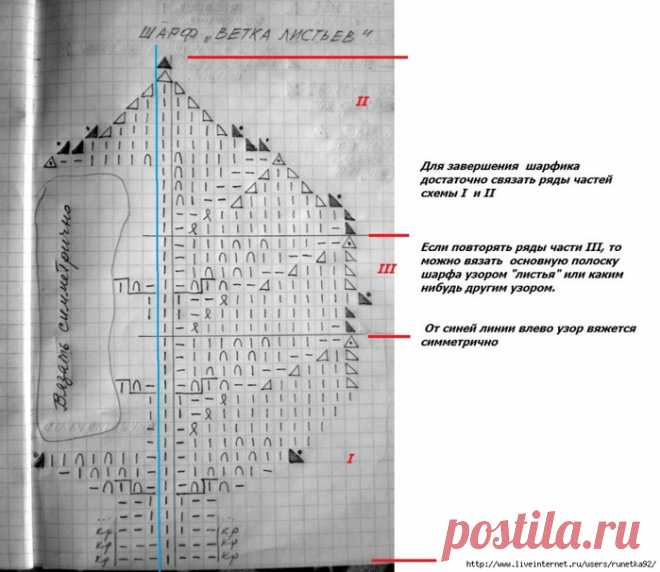 ШАРФ „ВЕТКА ЛИСТЬЕВ"
II
Для завершения шарфика
достаточно связать ряды частей
схемы I и II
Если повторять ряды части III, то
можно вязать основную полоску
шарфа узором "листья" или каким
нибудь другим узором.
III
От синей линии влево узор вяжется
симметрично
Вязать симметрично
I
кр кр
кр кр
кр кр
postila.ru
http://www.liveinternet.ru/users/runetka92/